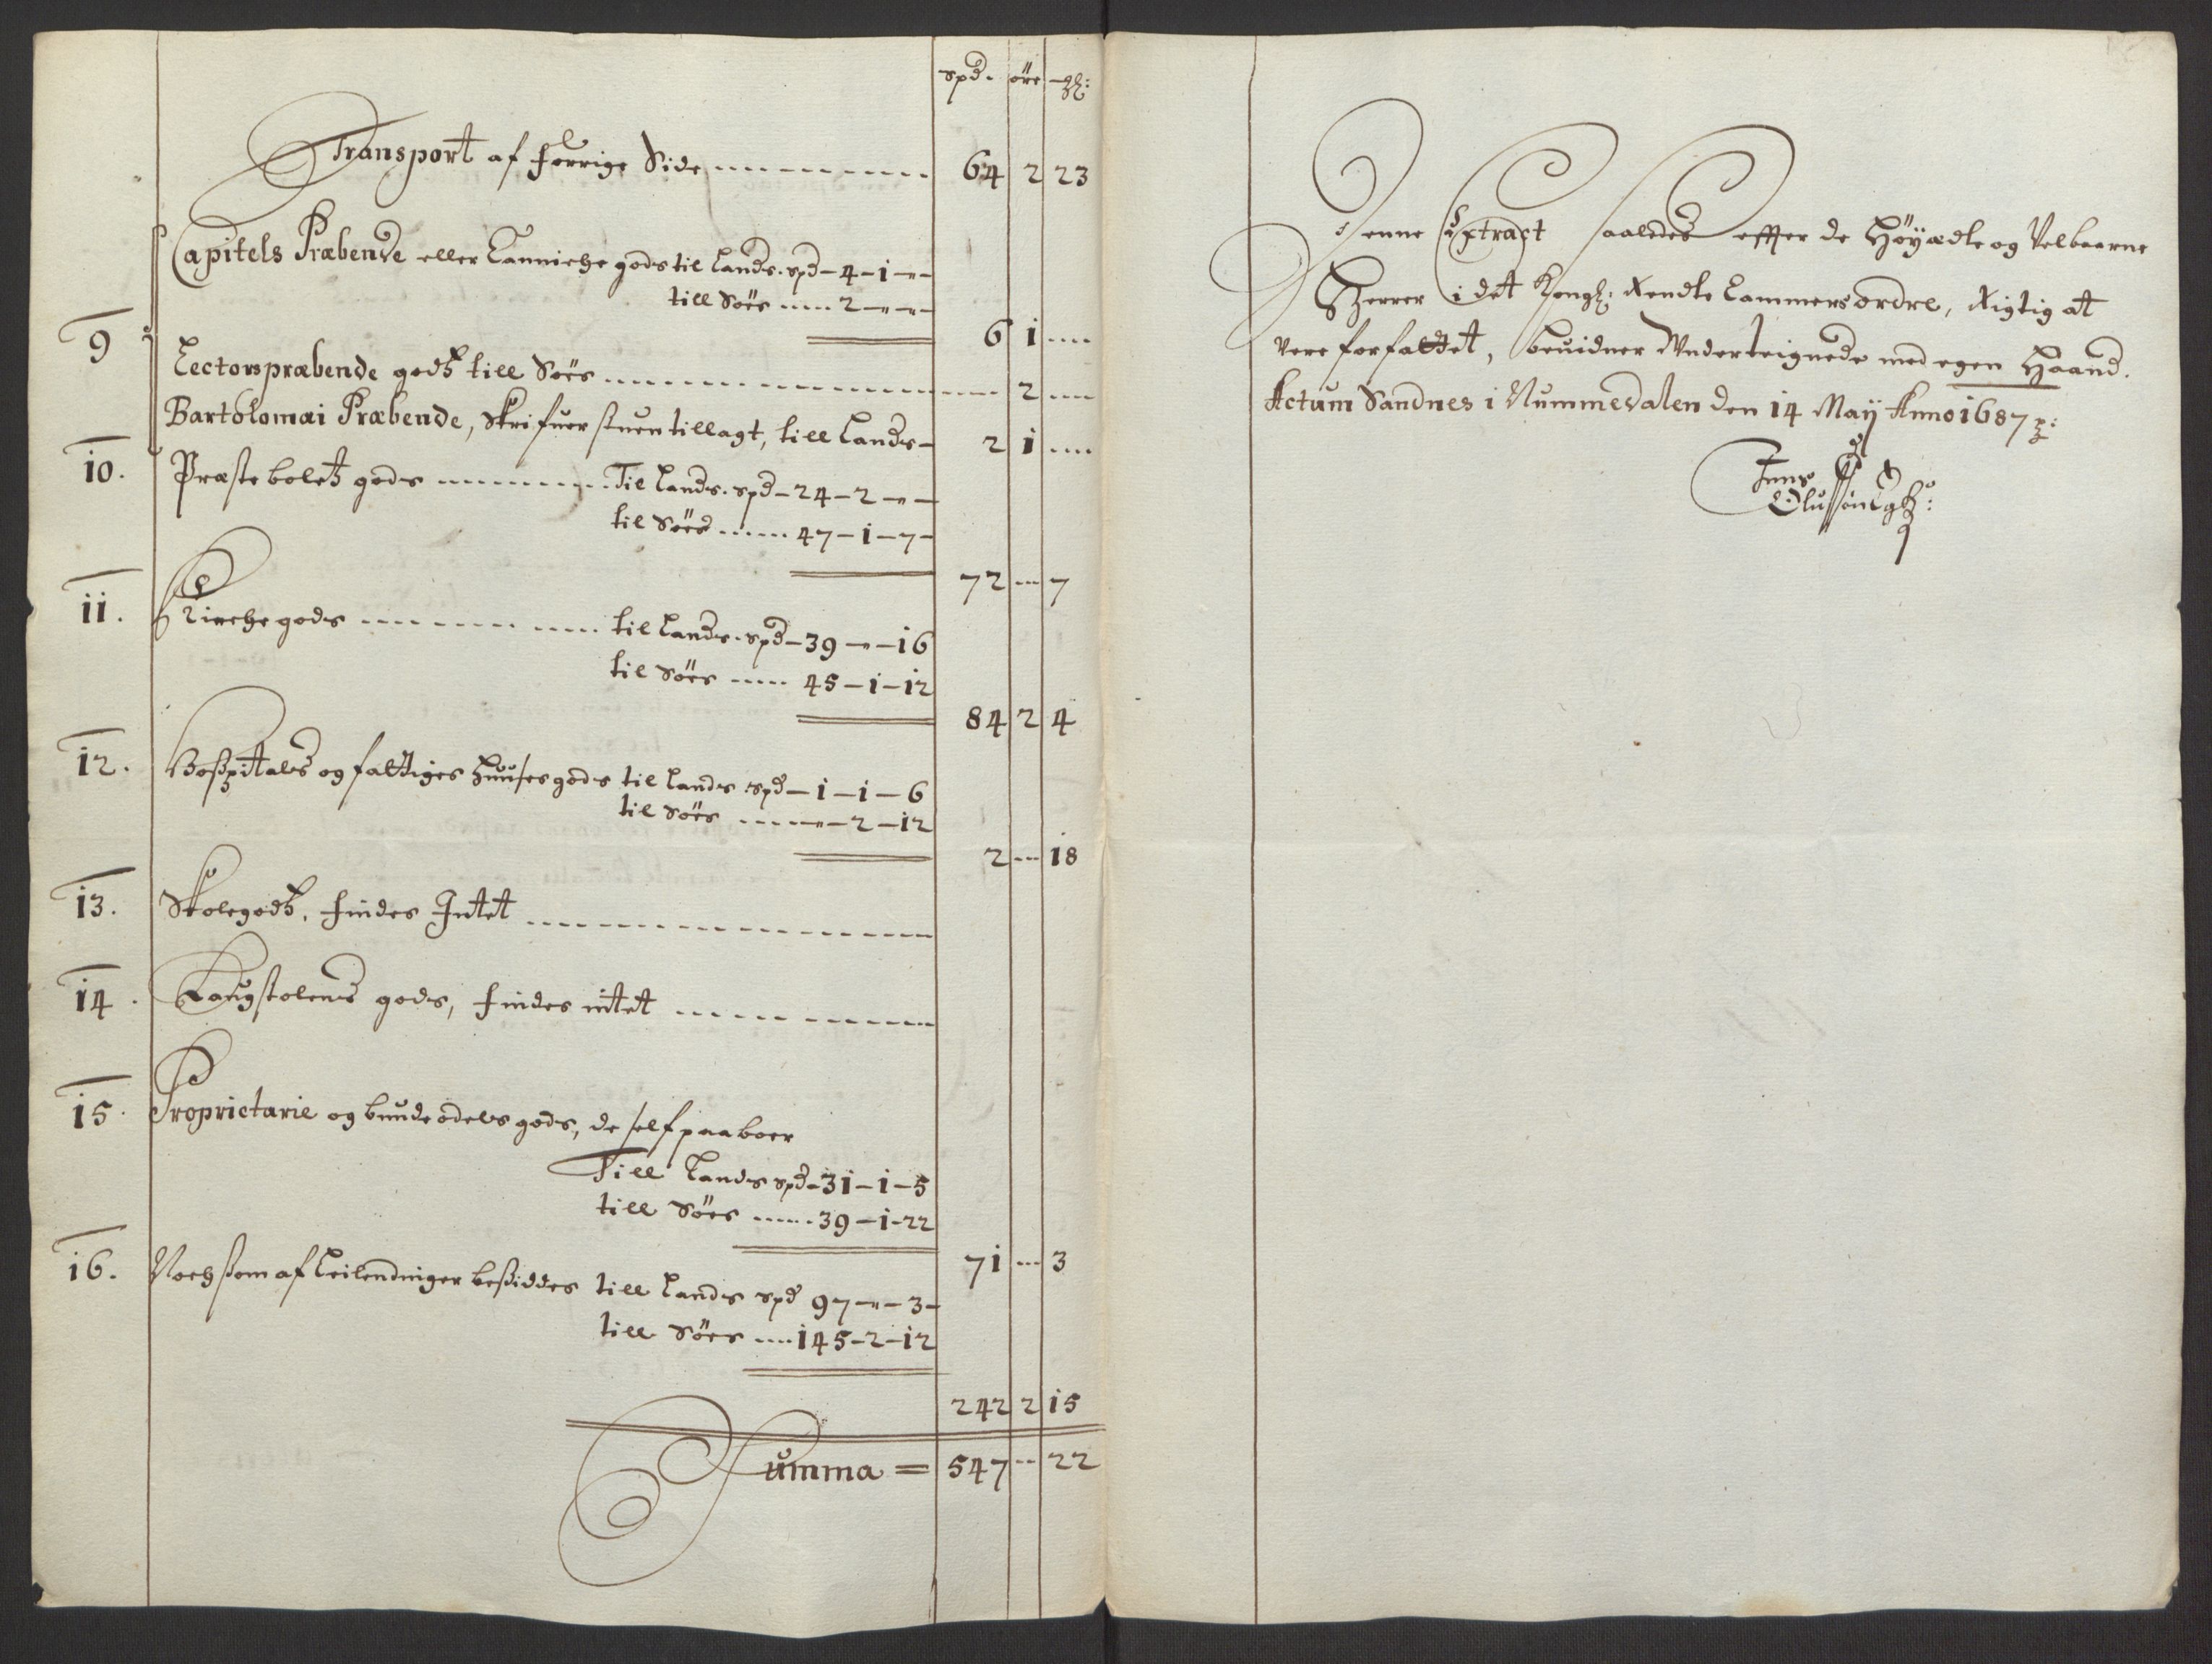 spd. öre mk:
Transport af forrige Side 64 2 23
Capitels Præbende eller Cannicke gods til Lands. spd – 4 – 1 – " –
till Söes 2 – " – "
9 6 1
Lectorspræbende godtz till Söes 2
Bartolomæi Præbende, Skrifuer stuen tillagt, till Lands – 2 1
10. Præsteboletz gods Til Lands. spd – 24 – 2 – " –
til Söes 47 – 1 – 7 –
72 7
11. Kircke gods til Lands. spd – 39 – " – 16
til Söes 45 – 1 – 12
84 2 4
12. Hoszpitals og fattiges Huuses gods til Lands spd – 1 – 1 – 6
til Söes " – 2 – 12
2 18
13. Skolegodtz, findes Intet
14. Laugstolens gods, findes intet
15. Proprietarie og bunde odels gods, de self paaboer
Till Lands spd – 31 – 1 – 5
till Söes 39 – 1 – 22
71 3
16. Noch som af Leilendinger besiddes till Lands spd 97 – " – 3 –
till Söes 145 – 2 – 12
242 2 15
Summa = 547 22
Denne Extract saaledes effter de Höyædle og Velbaarne
Herrer i det Kongl: Rendte Cammers ordre, Rigtig at
vere forfattet, beuidner Underteignede med egen Haand.
Actum Sandnes i Nummedalen den 14 Maÿ Anno 1687
Jens
Olussön